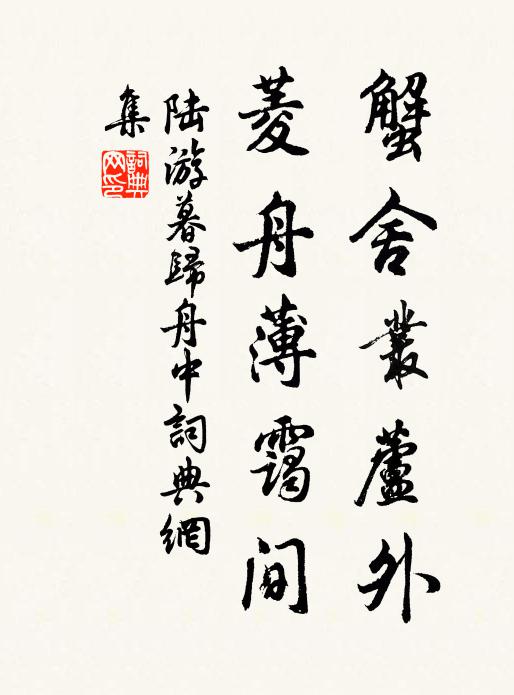 蟹舍叢蘆外
菱舟薄靄間
陸游暮歸舟中詞典網
集
詞典
网印